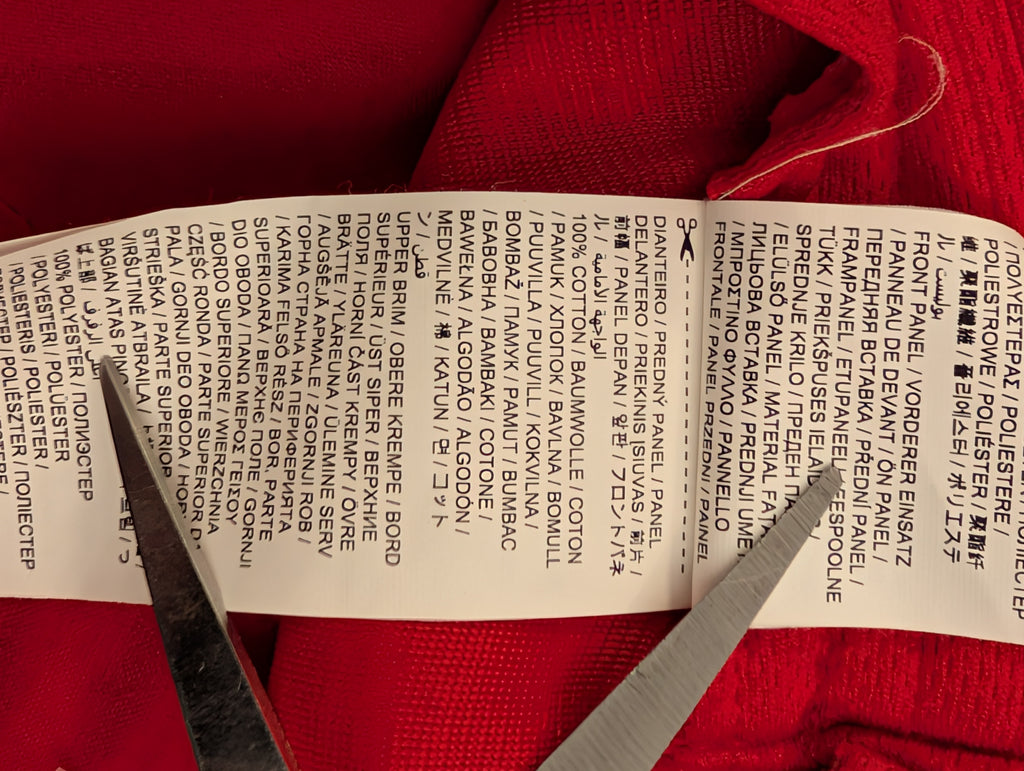 ПОЛІЕСТЕР
/ ΠΟΛΥΕΣΤΕΡΑΣ / POLIESTERE /
POLIESTROWE / POLIÉSTER / 聚酯纤
维 / 聚酯纖維 / 폴리에스터 / ポリエステ
ル / بوليستر
FRONT PANEL / VORDERER EINSATZ
/ PANNEAU DE DEVANT / ÖN PANEL /
ПЕРЕДНЯЯ ВСТАВКА / PŘEDNÍ PANEL /
FRAMPANEL / ETUPANEELI / EESPOOLNE
TÜKK / PRIEKŠPUSES /
SPREDNJE KRILO / ПРЕДЕН
/ ELÜLSŐ PANEL / MATERIAL
ЛИЦЬОВА ВСТАВКА / PREDNJI
/ ΜΠΡΟΣΤΙΝΟ ΦΥΛΛΟ / PANNELLO
FRONTALE / PANEL PRZEDNI / PAINEL
DIANTEIRO / PREDNÝ PANEL / PANEL
DELANTERO / PRIEKINIS ĮSIUVAS / 前片 /
前幅 / PANEL DEPAN / 앞판 / フロントパネ
ル / الواجهة الأمامية
100% COTTON / BAUMWOLLE / COTON
/ PAMUK / ХЛОПОК / BAVLNA / BOMULL
/ PUUVILLA / PUUVILL / KOKVILNA /
BOMBAŽ / ПАМУК / PAMUT / BUMBAC
/ БАВОВНА / ΒΑΜΒΑΚΙ / COTONE /
BAWEŁNA / ALGODÃO / ALGODÓN /
MEDVILNĖ / 棉 / KATUN / 면 / コット
ン / قطن
UPPER BRIM / OBERE KREMPE / BORD
SUPÉRIEUR / ÜST SIPER / ВЕРХНИЕ
ПОЛЯ / HORNÍ ČÁST KREMPY / ÖVRE
BRÄTTE / YLÄREUNA / ÜLEMINE SERV
/ AUGŠĒJĀ APMALE / ZGORNJI ROB /
ГОРНА СТРАНА НА ПЕРИФЕРИЯТА
/ KARIMA FELSŐ RÉSZ / BOR, PARTE
SUPERIOARĂ / ВЕРХНЄ ПОЛЕ / GORNJI
DIO OBODA / ΠΑΝΩ ΜΕΡΟΣ ΓΕΙΣΟΥ
/ BORDO SUPERIORE / WIERZCHNIA
CZĘŚĆ RONDA / PARTE SUPERIOR DA
PALA / GORNJI DEO OBODA /
STRIEŠKA / PARTE SUPERIOR
VIRŠUTINĖ ATBRAILA /
BAGIAN ATAS
ば上部
100% POLYESTER / ПОЛИЭСТЕР
/ POLYESTERI / POLÜESTER
/ POLIESTERIS / POLIESTER /
/ POLIÉSZTER / ПОЛІЕСТЕР